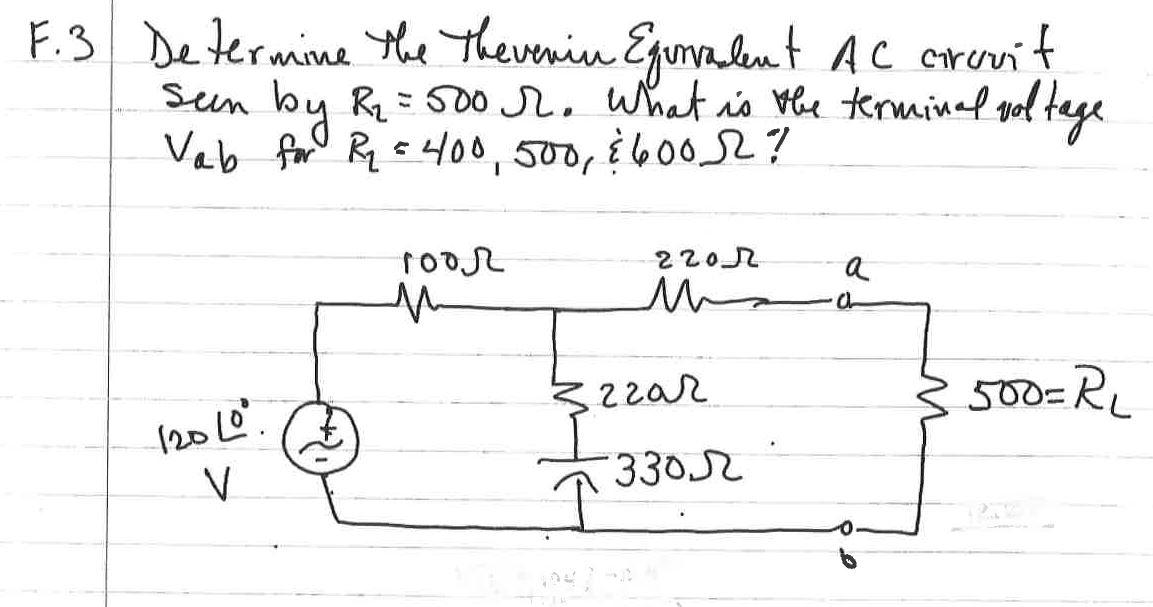 F.3 Determine the Thevenin Equivalent AC circuit
seen by RL = 500 Ω. What is the terminal voltage
Vab for RL = 400, 500, & 600 Ω?
100Ω 220Ω a
220Ω 500=RL
120∠0° + 
V - 330Ω
b